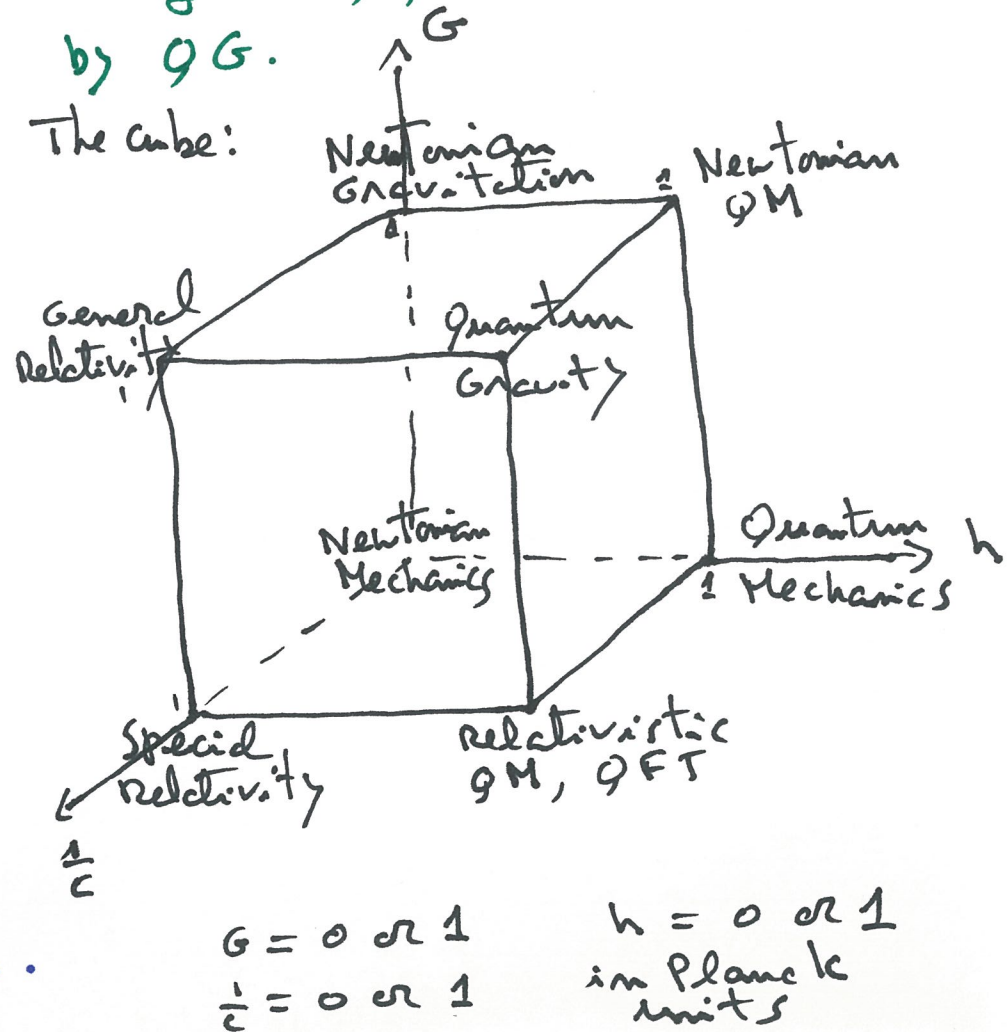 by QG.
G
The cube:
Newtonian
Gravitation
1
1
Newtonian
QM
General
Relativity
1
Quantum
Gravity
Newtonian
Mechanics
Quantum
h
1 Mechanics
1
Special
Relativity
Relativistic
QM, QFT
1
c
G = 0 or 1
1/c = 0 or 1
h = 0 or 1
in Planck
units